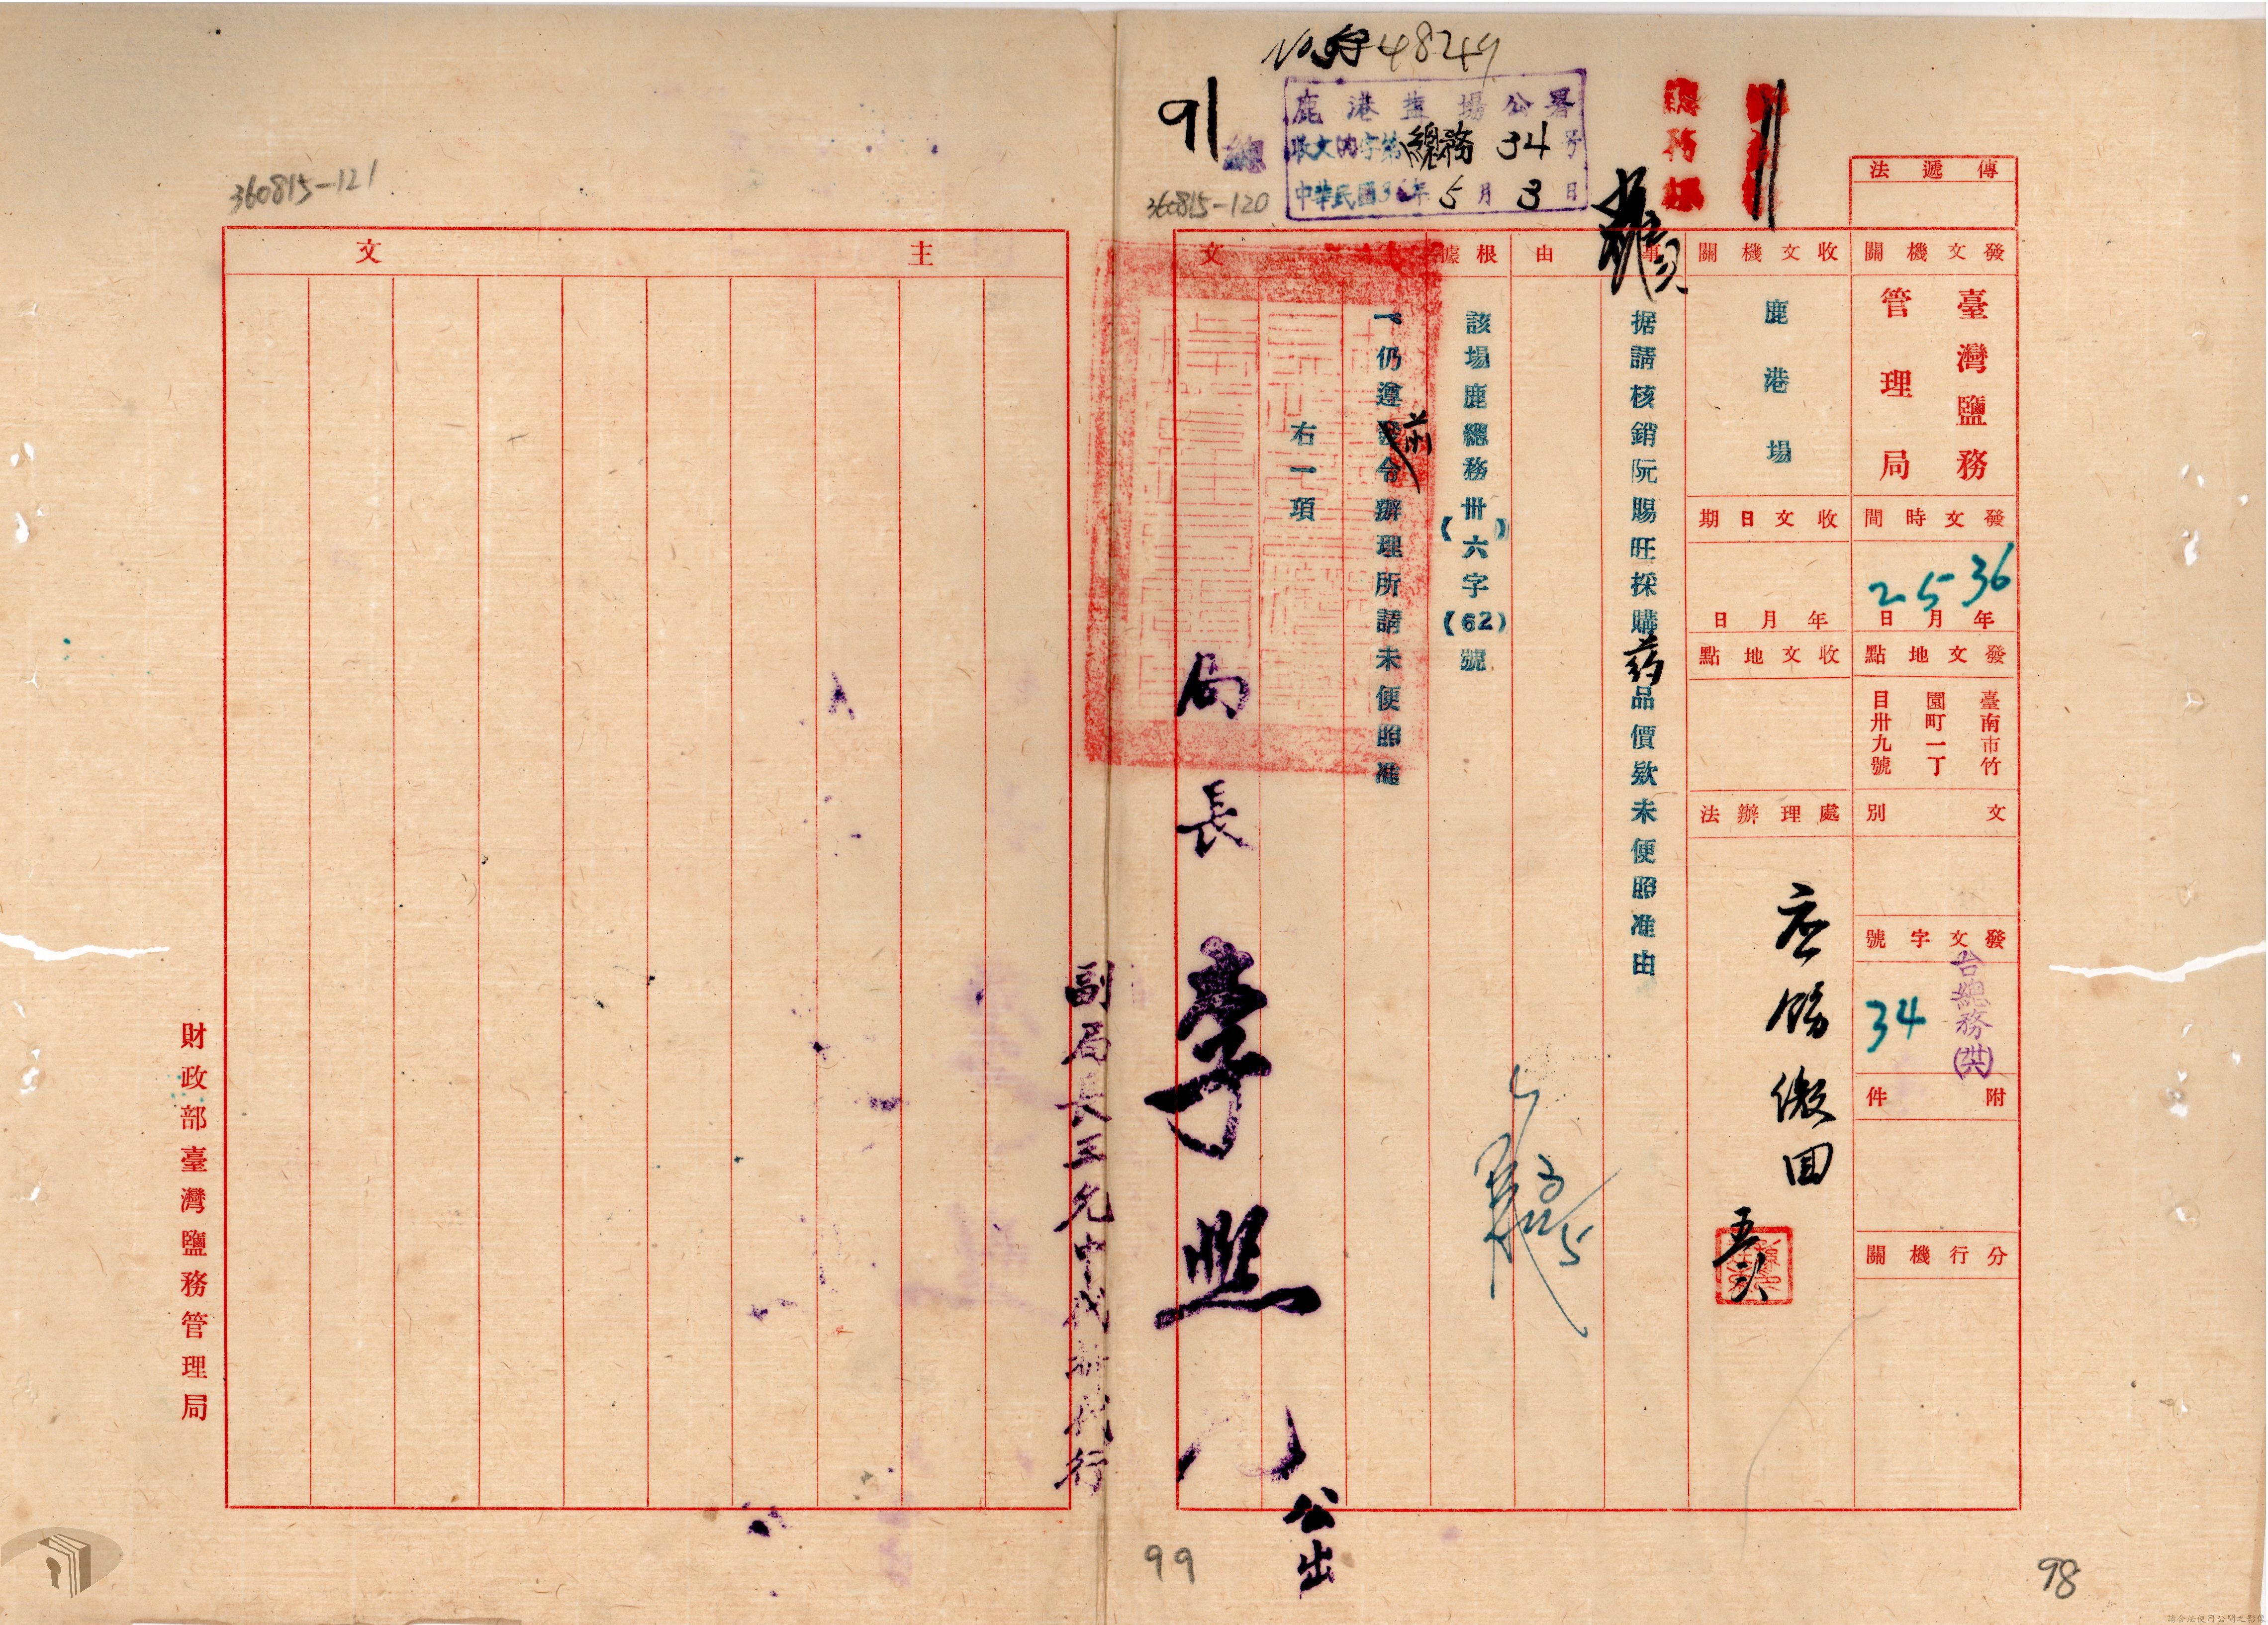 No. 4824
91
鹿港塩場公署
收文 字第總務34号
中華民國36年5月3日
360815-120
360815-121
總務
傳遞法
發文機關
臺灣鹽務
管理局
發文時間
36年5月2日
發文地點
臺南市竹
園町一丁
目卅九號
文別
發文字號
台總務
34
附件
分行機關
收文機關
鹿港場
收文日期
年月日
收文地點
處理辦法
應 繳回
事由
据請核銷阮賜旺採購药品價欵未便照准由
根據
該場鹿總務(卅六)字(62)號
主文
一仍遵前令辦理所請未便照准
右一項
局長李
公出
副局長王允中 代行
主文
財政部臺灣鹽務管理局
99
98
請合法使用公開之影像